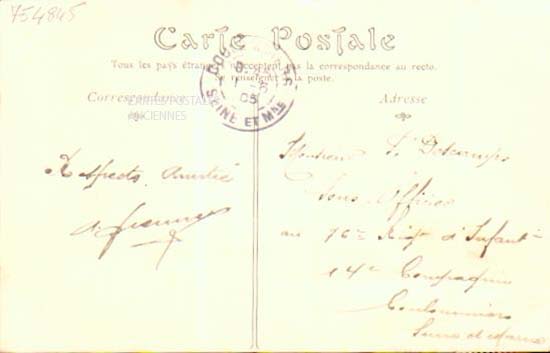 754845
Carte Postale
Tous les pays étrangers n'acceptent pas la correspondance au recto.
Se renseigner à la poste.
Correspondance
Adresse
CARTES POSTALES
ANCIENNES
SEINE ET MNE
05
Respects Amitié
Monsieur
Sous Officier
au 76e Régt d'Infant
14e Compagnie
Coulommiers
Seine et Marne